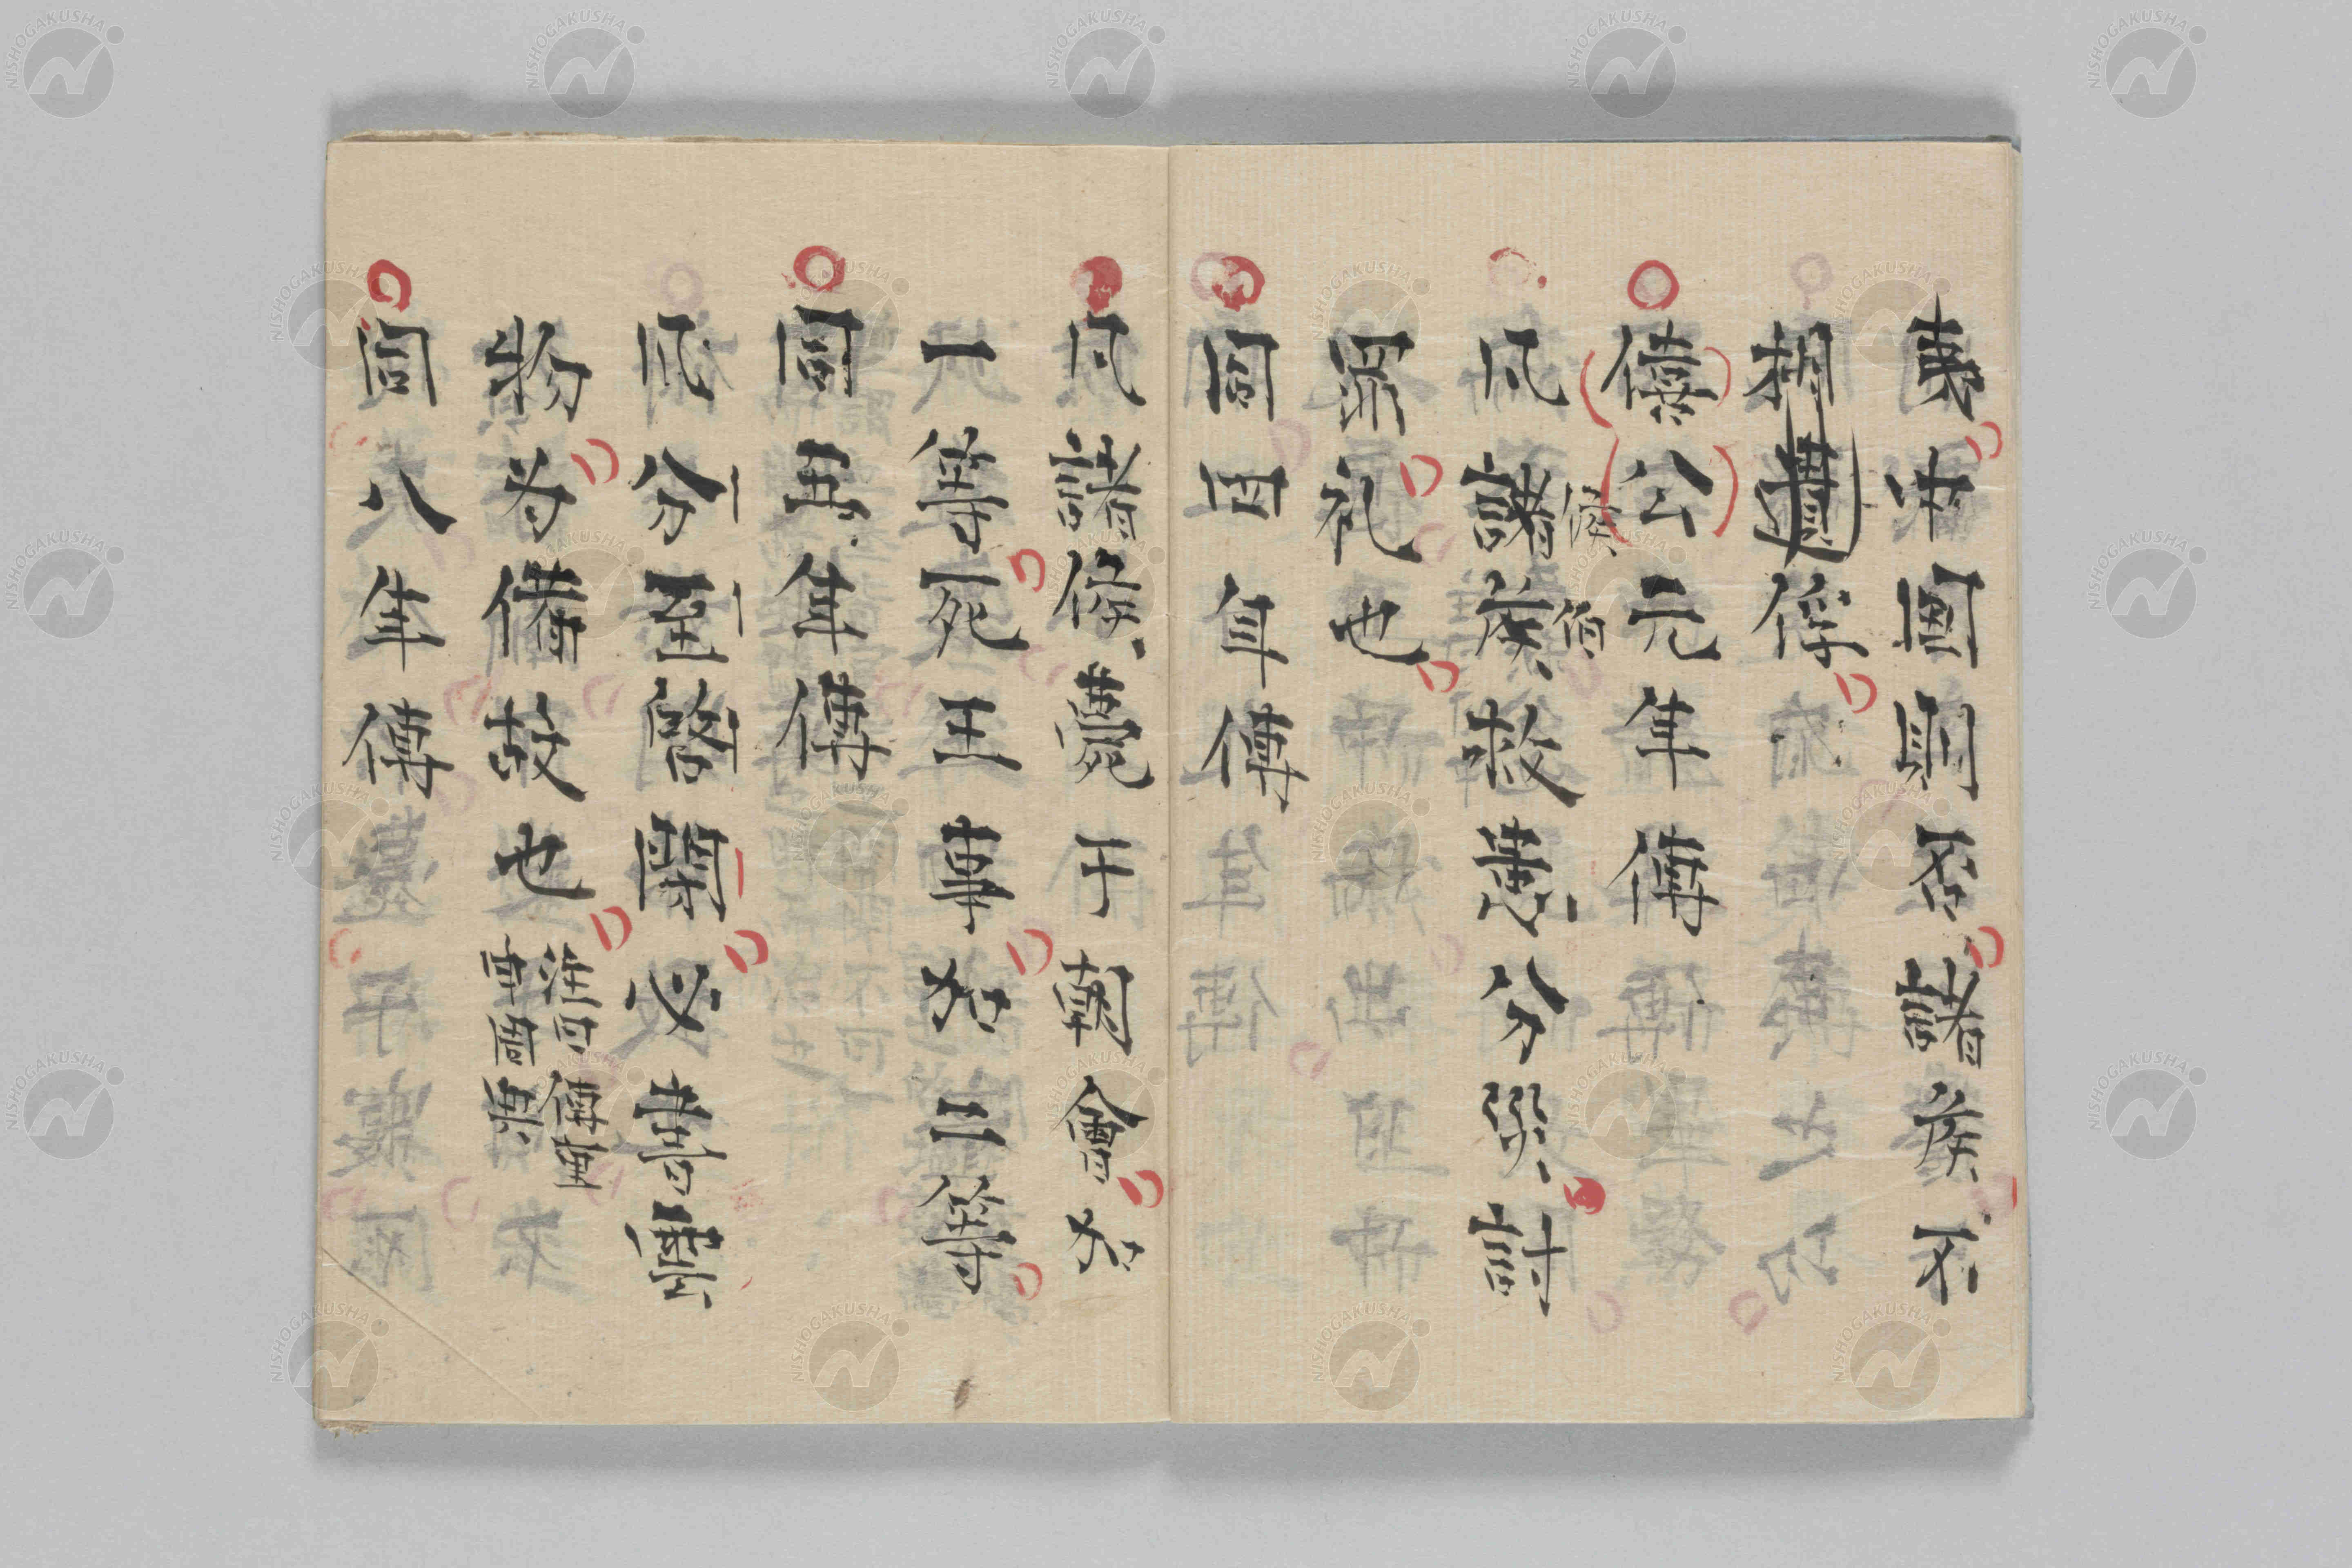 夷中國則否諸侯不
相遺俘
僖公元年傳
侯伯
凡諸侯救患分災討
罪礼也
同四年傳
凡諸侯薨于朝會加
一等死王事加二等
同五年傳
凡分至啓閉必書雲
物為備故也
注云傳重
申周典
同八年傳
NISHOGAKUSHA